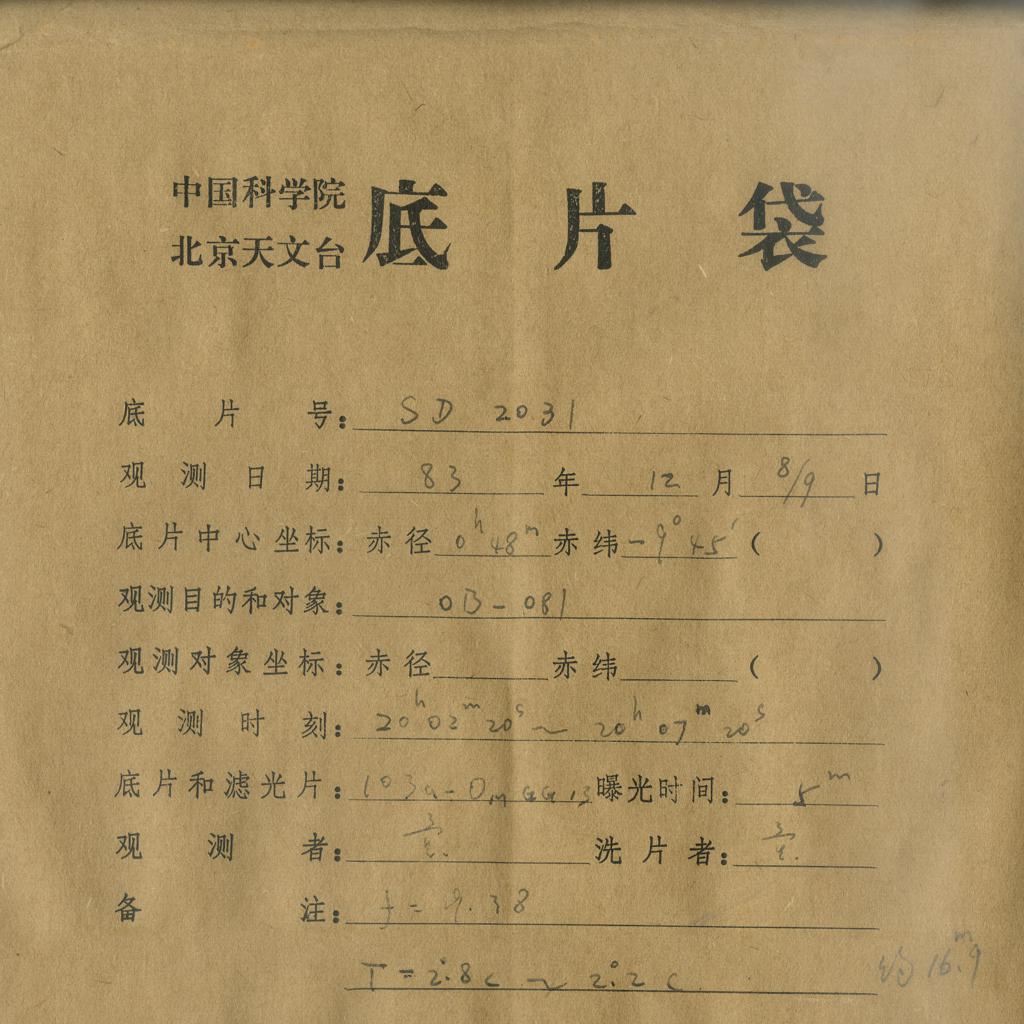 中国科学院
北京天文台 底片袋
底片号: SD 2031
观测日期: 83 年 12 月 8/9 日
底片中心坐标: 赤径 0ʰ48ᵐ 赤纬 -9°45′ ( )
观测目的和对象: OB-081
观测对象坐标: 赤径 赤纬 ( )
观测时刻: 20ʰ02ᵐ20ˢ ~ 20ʰ07ᵐ20ˢ
底片和滤光片: 103a-O, GG13 曝光时间: 5ᵐ
观测者: 洗片者:
备注: f = 9.38
T = 2°.8c ~ 2°.2c
约16ᵐ.9